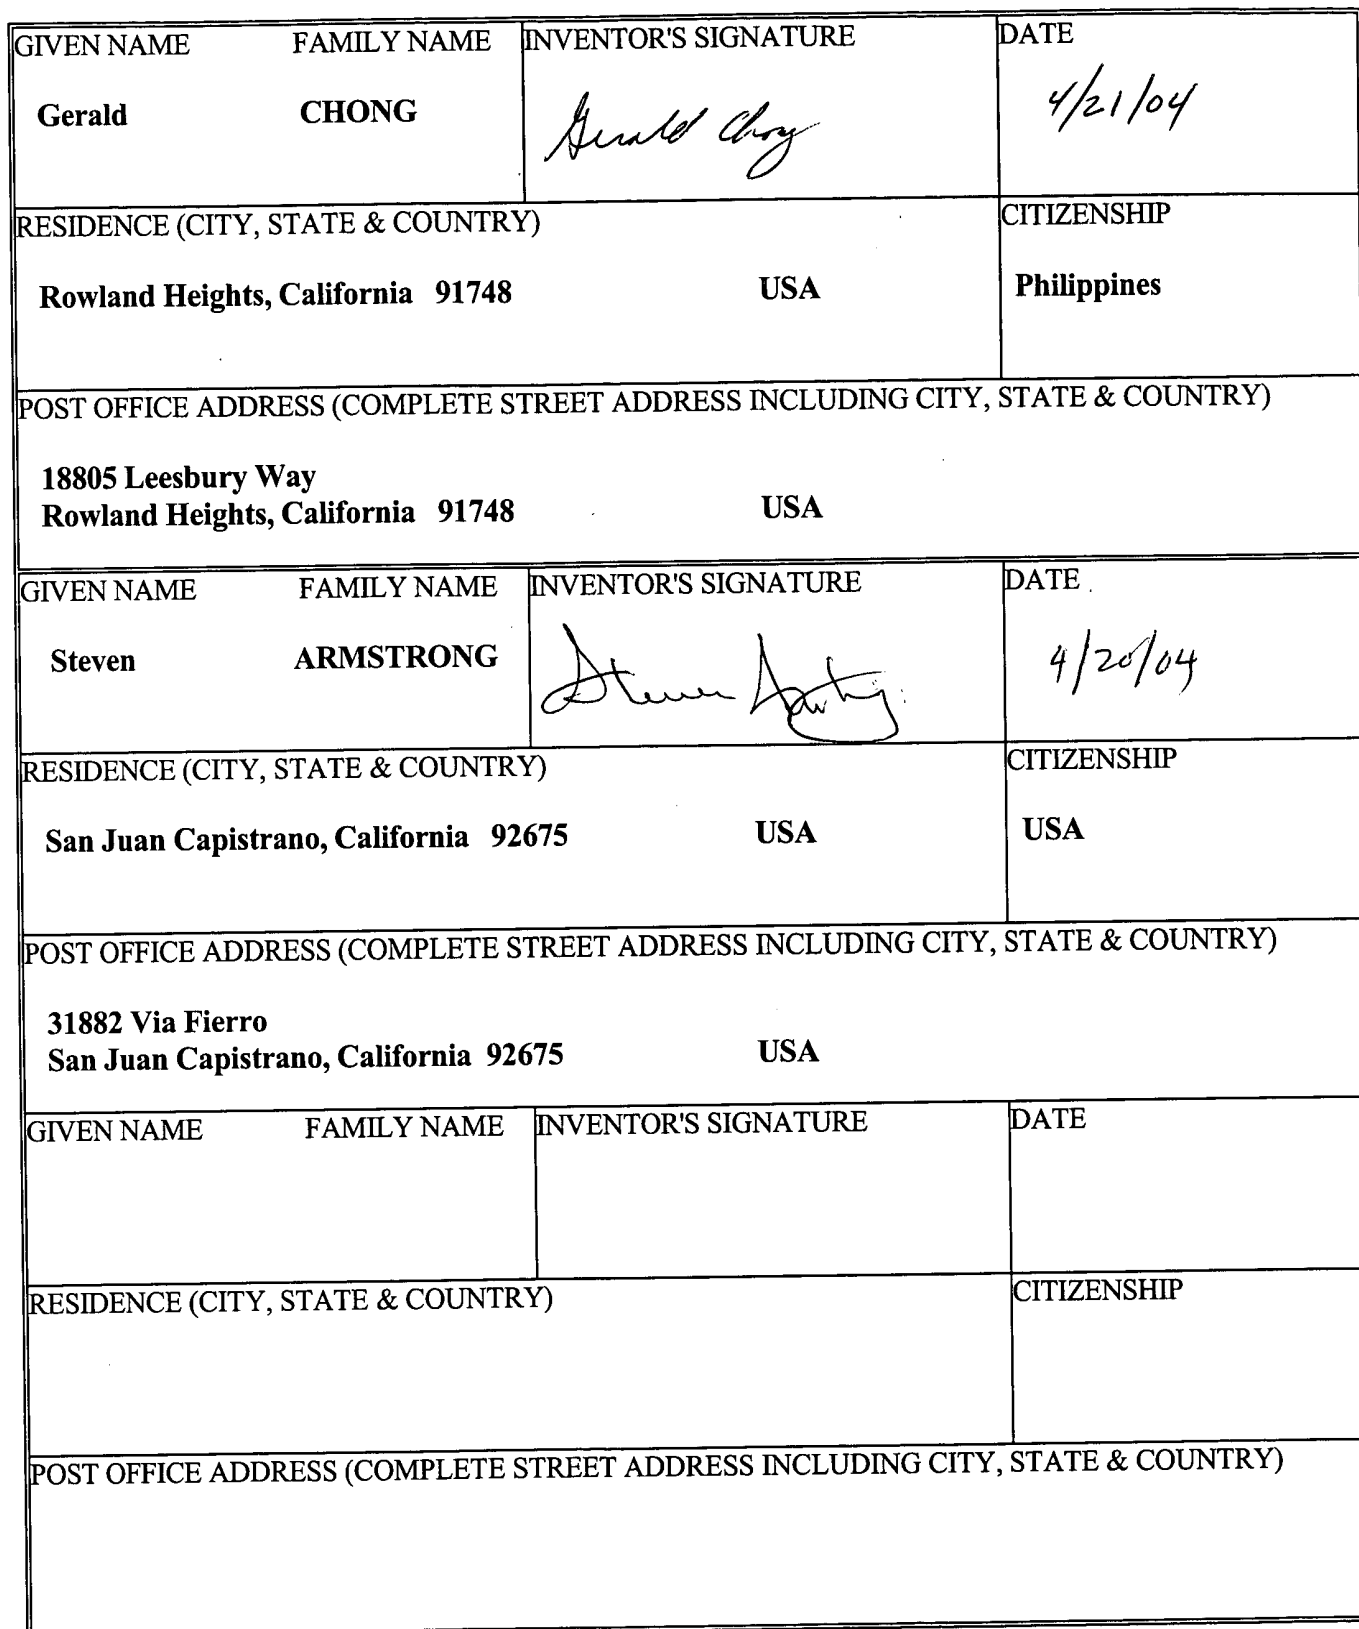 GIVEN NAME FAMILY NAME INVENTOR'S SIGNATURE DATE
Gerald CHONG Gerald Chong 4/21/04
RESIDENCE (CITY, STATE & COUNTRY) CITIZENSHIP
Rowland Heights, California 91748 USA Philippines
POST OFFICE ADDRESS (COMPLETE STREET ADDRESS INCLUDING CITY, STATE & COUNTRY)
18805 Leesbury Way
Rowland Heights, California 91748 USA
GIVEN NAME FAMILY NAME INVENTOR'S SIGNATURE DATE
Steven ARMSTRONG Steven 4/20/04
RESIDENCE (CITY, STATE & COUNTRY) CITIZENSHIP
San Juan Capistrano, California 92675 USA USA
POST OFFICE ADDRESS (COMPLETE STREET ADDRESS INCLUDING CITY, STATE & COUNTRY)
31882 Via Fierro
San Juan Capistrano, California 92675 USA
GIVEN NAME FAMILY NAME INVENTOR'S SIGNATURE DATE
RESIDENCE (CITY, STATE & COUNTRY) CITIZENSHIP
POST OFFICE ADDRESS (COMPLETE STREET ADDRESS INCLUDING CITY, STATE & COUNTRY)